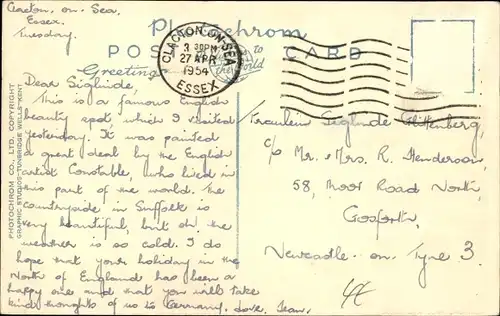 Clacton. on. Sea,
Essex.
Tuesday.
Photochrom
POST CARD
Greetings
to
the World
CLACTON-ON-SEA
3 30PM
27 APR
1954
ESSEX
PHOTOCHROM CO., LTD. COPYRIGHT
GRAPHIC STUDIOS-TUNBRIDGE WELLS-KENT
Dear Siglinde,
This is a famous English
beauty spot which I visited
yesterday. It was painted
a great deal by the English
artist Constable, who lived in
this part of the world. The
countryside in Suffolk is
very beautiful, but oh! the
weather is so cold. I do
hope that your holiday in the
North of England has been a
happy one and that you will take
kind thoughts of us to Germany. Love, Jean.
Fraulein Sieglinde
c/o Mr. & Mrs. R. Henderson,
58, Moor Road North,
Gosforth,
Newcastle. on. Tyne 3.